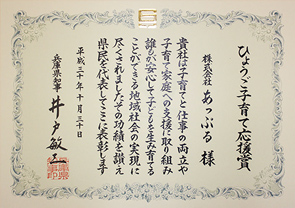 ひょうご子育て応援賞
株式会社 あっぷる 様
貴社は子育てと仕事の両立や
子育て家庭への支援に取り組み
誰もが安心して子どもを生み育てる
ことができる地域社会の実現に
尽くされましたその功績を讃え
県民を代表してここに表彰します
平成三十年十月三十日
兵庫県知事 井戸敏三